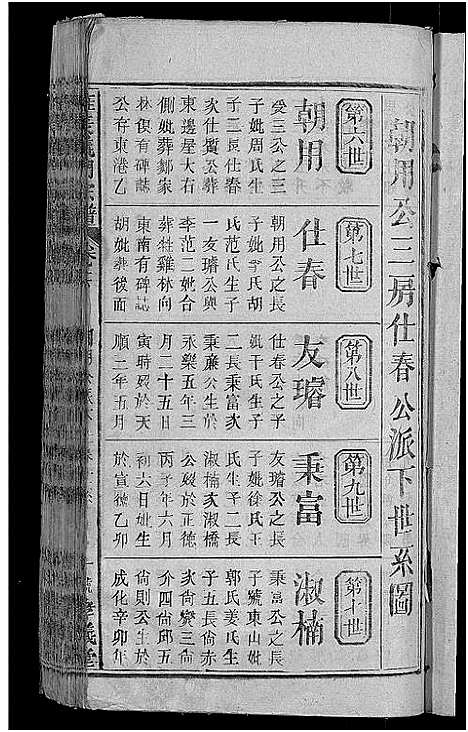 朝用公三房仕春公派下世系圖
第六世
朝用
愛三公之三
子妣周氏生
子二長仕春
次仕賓公葬
東邊屋大石
側妣葬鄒家
林俱有碑誌
公存東港乙
第七世
仕春
朝用公之長
子妣李氏胡
氏范氏生子
一友璿公與
李范二妣合
葬牲雞林向
東南有碑誌
胡妣葬後面
第八世
友璿
仕春公之子
妣干氏生子
二長秉富次
秉廉公生於
永樂五年三
月二十五日
寅時歿於天
順二年五月
第九世
秉富
友璿公之長
子妣徐氏王
氏生子二長
淑楠次淑橋
公歿於正德
丙子年六月
初六日妣生
於宣德乙卯
第十世
淑楠
秉富公之長
子號東山妣
郭氏姜氏生
子五長尙赤
次尙變三尙
介四尙邱五
尙則公生於
成化辛卯年